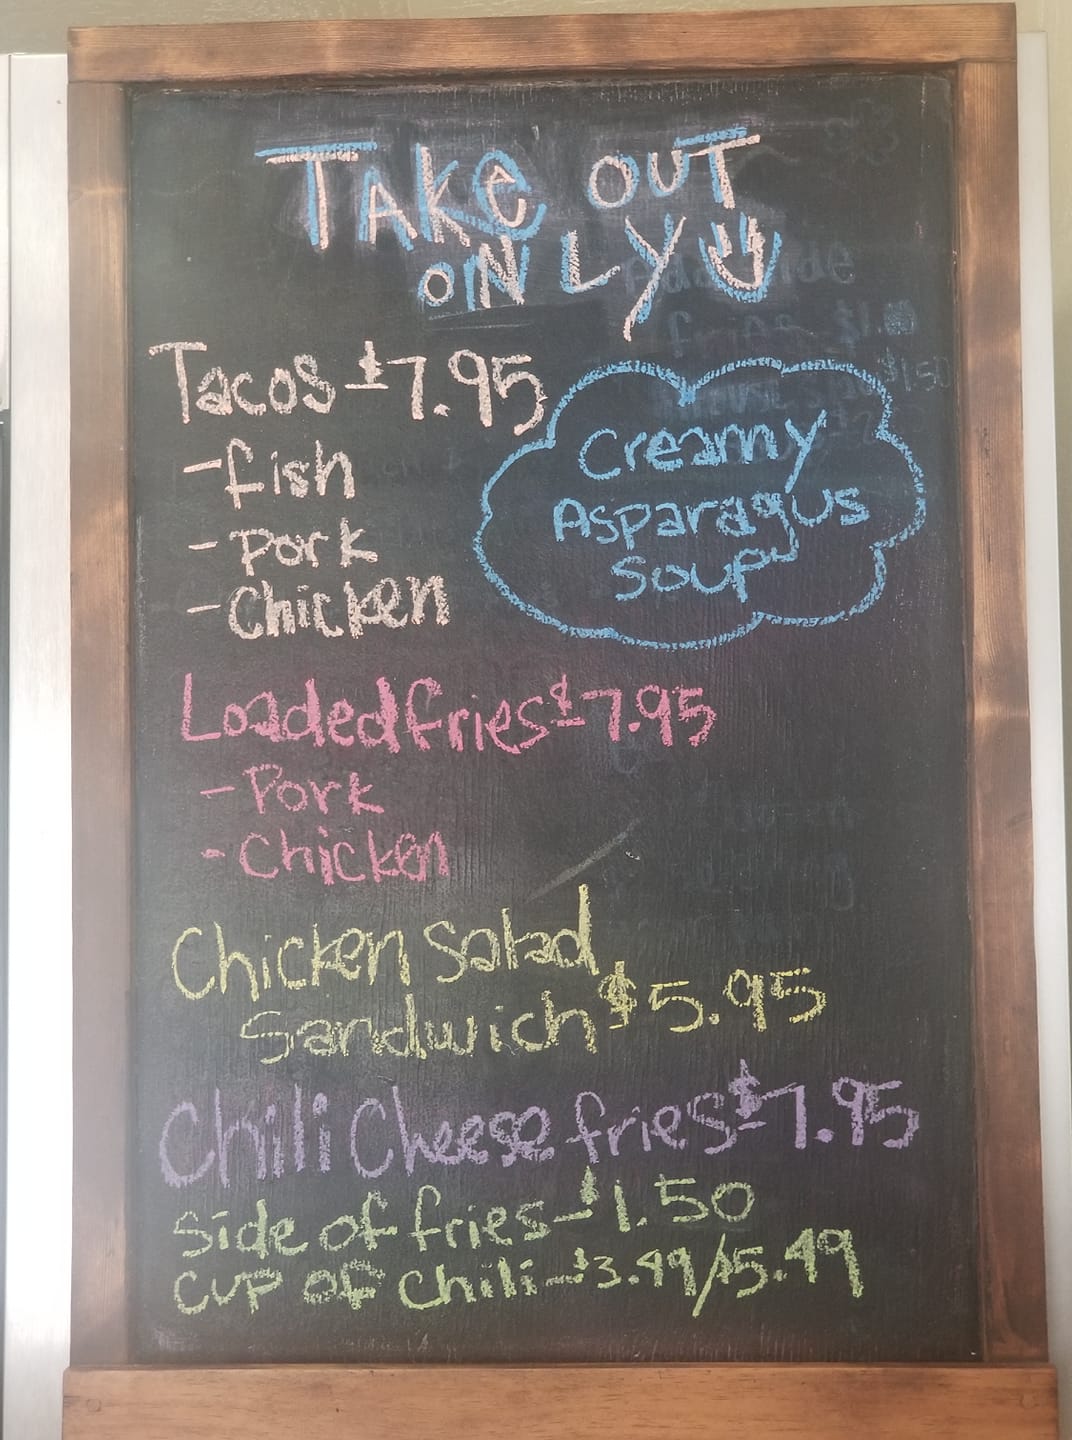 TAKE OUT
ONLY
Tacos $7.95
-fish
-Pork
-Chicken
Creamy
Asparagus
Soup
Loaded fries $7.95
-Pork
-Chicken
Chicken Salad
Sandwich $5.95
Chili Cheese fries $7.95
Side of fries-$1.50
CUP OF Chili-$3.49/$5.49